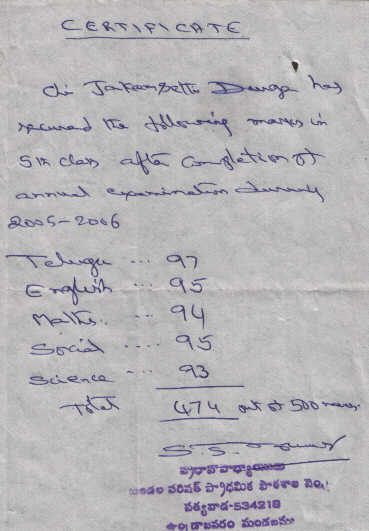 CERTIFICATE
Chi Jakamsetti Durga has
secured the following marks in
5th class after completion of
annual examination during
2005-2006
Telugu ... 97
English ... 95
Maths. ... 94
Social .... 95
Science ... 93
Total 474 out of 500 marks.
ప్రధానోపాధ్యాయుడు
మండల పరిషత్ ప్రాధమిక పాఠశాల నెం.1
పత్యవాడ-534218
ఉండ్రాజవరం మండలము